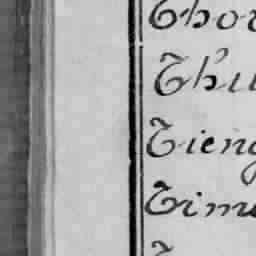 Thor
Thu
Tieng
Time